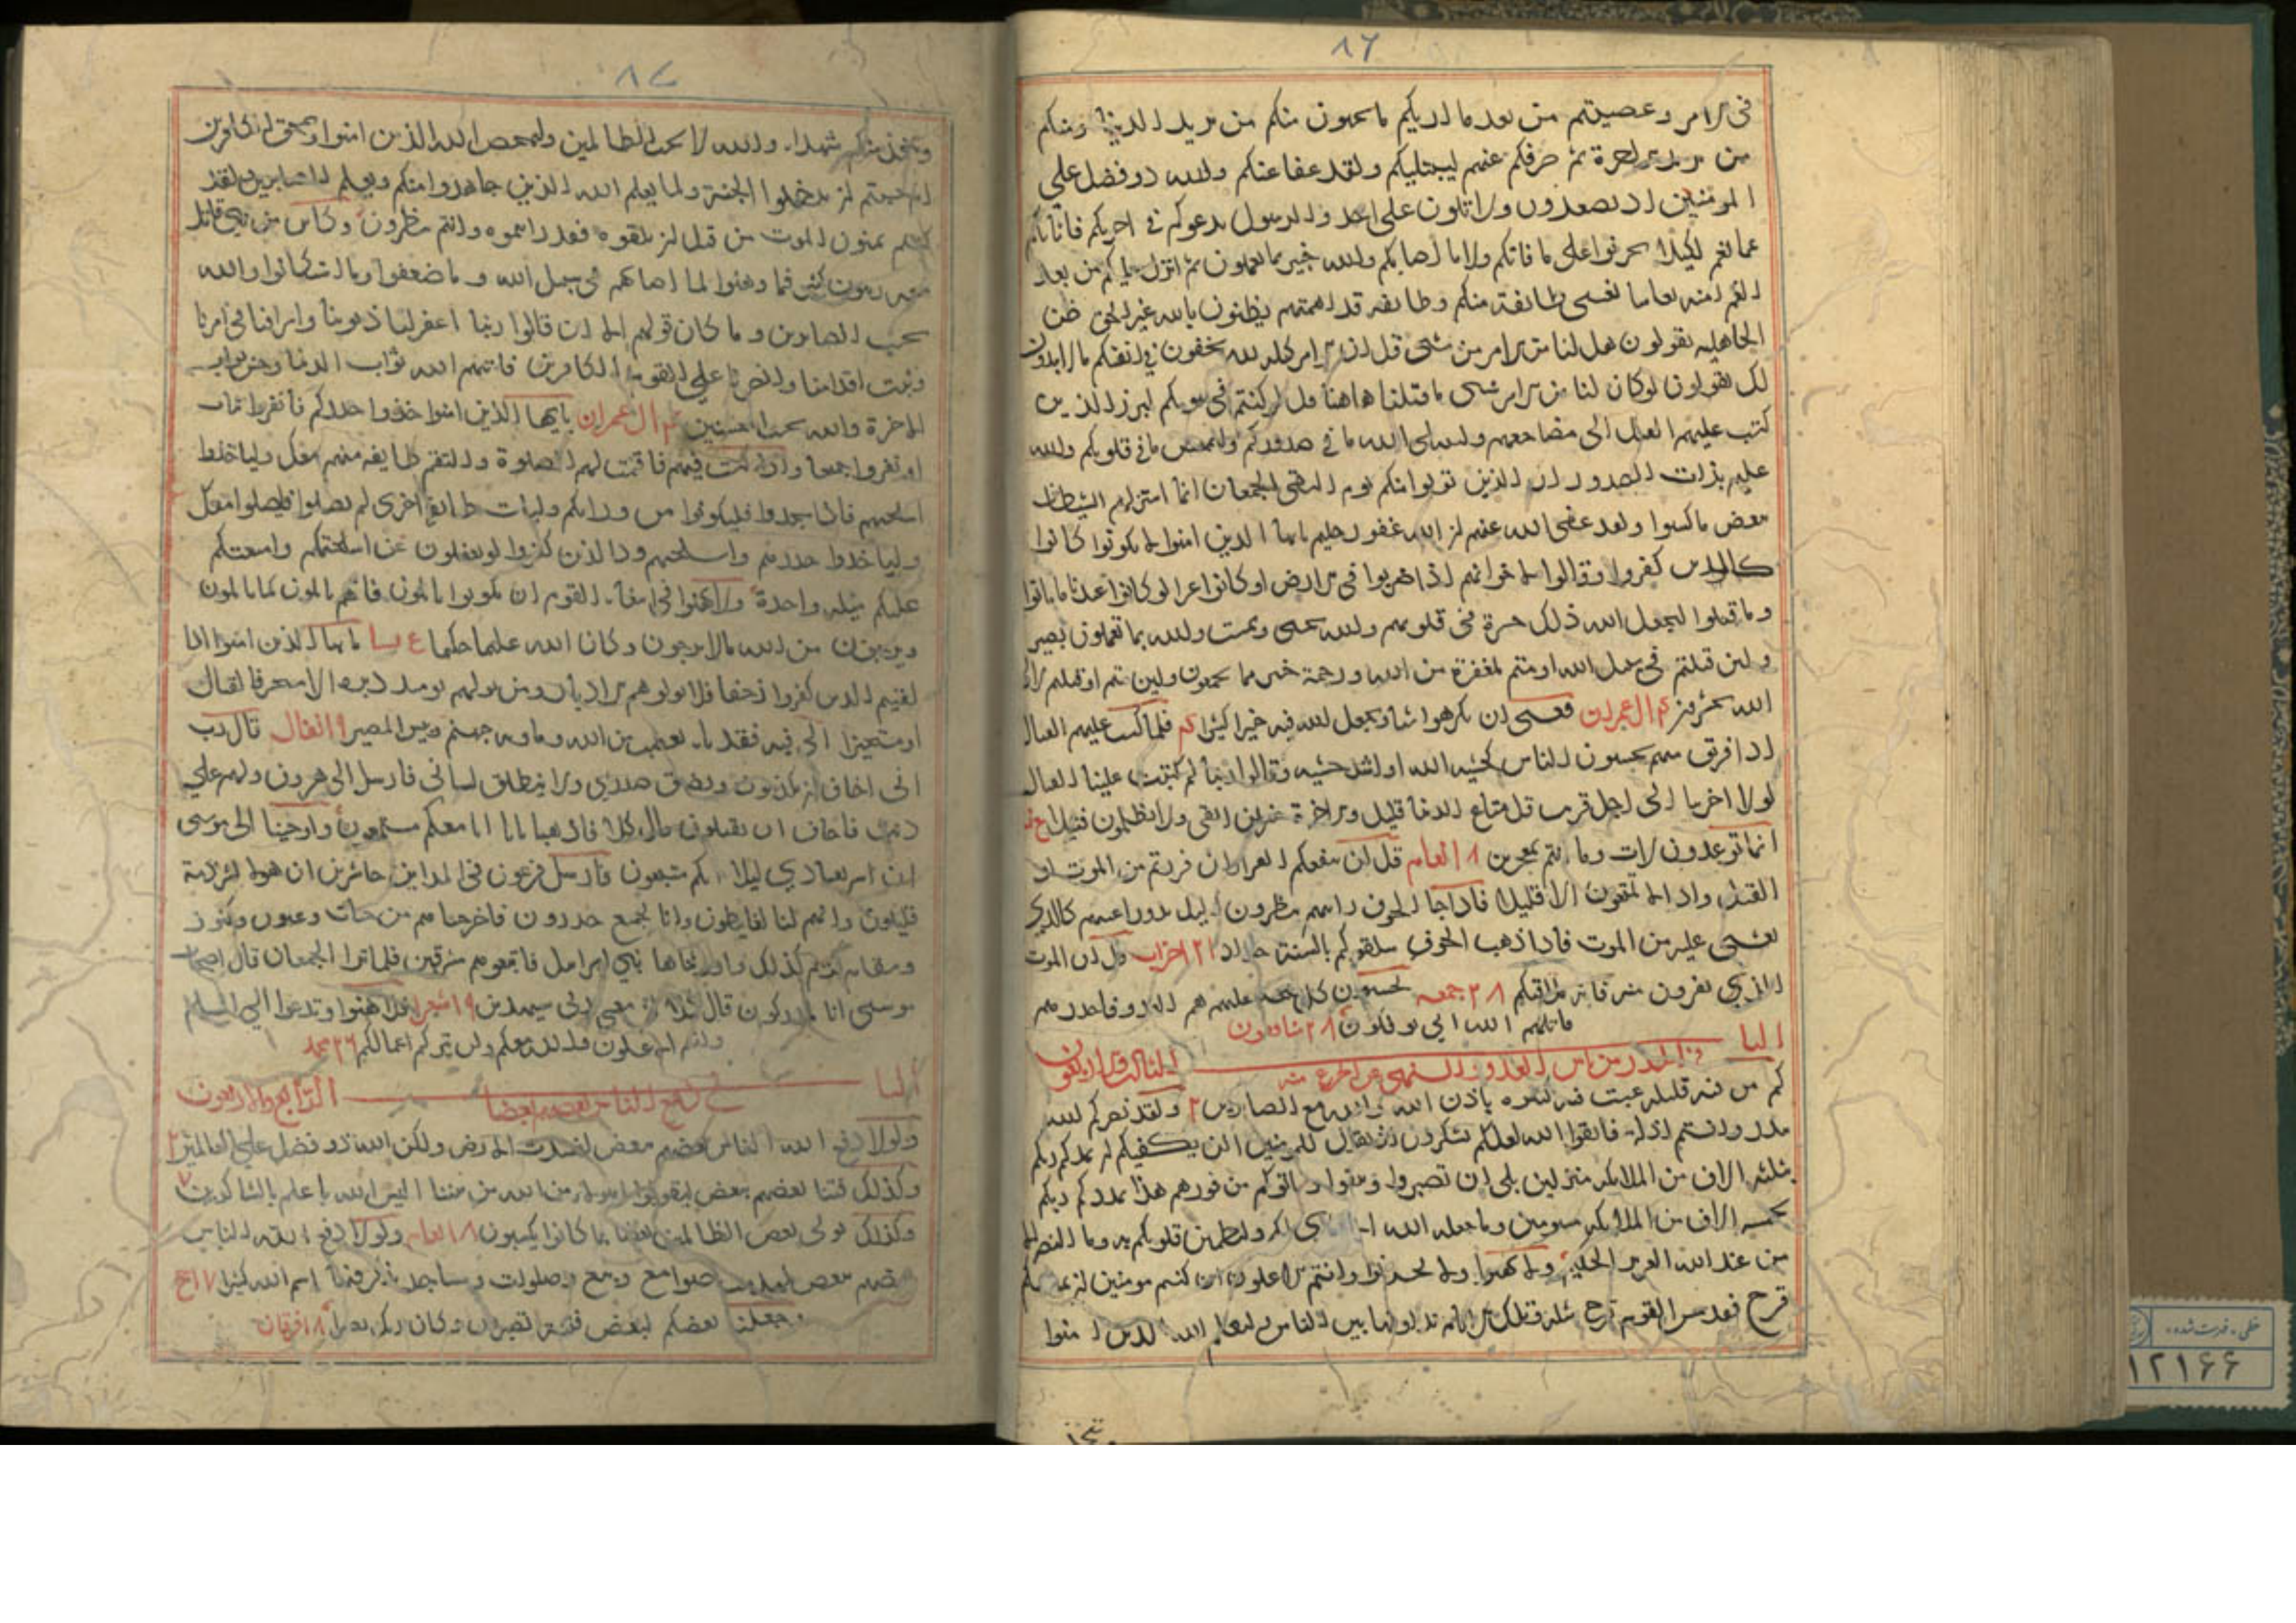 ٨٦
في الامر وعصيتم من بعد ما اريكم ما تحبون منكم من يريد الدنيا ومنكم
من يريد الاخرة ثم صرفكم عنهم ليبتليكم ولقد عفا عنكم والله ذو فضل علي
المومنين اذ تصعدون ولا تلون على احد والرسول يدعوكم في اخريكم فاثابكم
غما بغم لكيلا تحزنوا على ما فاتكم ولا ما اصابكم والله خبير بما تعملون ثم انزل عليكم من بعد
الغم امنة نعاسا يغشى طائفة منكم وطائفه قد اهمتهم يظنون بالله غير الحق ظن
الجاهليه يقولون هل لنا من الامر من شئ قل ان الامر كله لله يخفون في انفسهم ما لا يبدون
لك يقولون لو كان لنا من الامر شئ ما قتلنا هاهنا قل لو كنتم في بيوتكم لبرز الذين
كتب عليهم القتل الى مضاجعهم وليبتلي الله ما في صدوركم وليمحص ما في قلوبكم والله
عليم بذات الصدور ان الذين تولوا منكم يوم التقى الجمعان انما استزلهم الشيطان
ببعض ما كسبوا ولقد عفى الله عنهم ان الله غفور حليم يا ايها الذين امنوا لا تكونوا كانوا
كالذين كفروا وقالوا لاخوانهم اذا ضربوا في الارض او كانوا غزا لو كانوا عندنا ما ماتوا
وما قتلوا ليجعل الله ذلك حسرة في قلوبهم والله يحيى ويميت والله بما تعملون بصير
ولئن قتلتم في سبيل الله او متم لمغفرة من الله ورحمة خير مما يجمعون ولئن متم او قتلتم لالى
الله تحشرون ال عمران فعسى ان تكرهوا شيئا ويجعل الله فيه خيرا كثيرا فلما كتب عليهم القتال
اذا فريق منهم يخشون الناس كخشيه الله او اشد خشيه وقالوا ربنا لم كتبت علينا القتال
لولا اخرتنا الى اجل قريب قل متاع الدنيا قليل والاخرة خير لمن اتقى ولا تظلمون فتيلا
انما توعدون لات وما انتم بمعجزين ٨ انعام قل لن ينفعكم الفرار ان فررتم من الموت او
القتل واذا لا تمتعون الا قليلا فاذا جا الخوف رايتهم ينظرون اليك تدور اعينهم كالذي
يغشى عليه من الموت فاذا ذهب الخوف سلقوكم بالسنة حداد ٢١ احزاب قل ان الموت
الذي تفرون منه فانه ملاقيكم ٢٨ جمعه يحسبون كل صيحة عليهم هم العدو فاحذرهم
قاتلهم الله انى يوفكون ٢٨ منافقون
البا
الثالث والاربعون
كم من فئه قليله غلبت فئه كثيره باذن الله والله مع الصابرين ٢ ولقد نصركم الله
ببدر وانتم اذلة فاتقوا الله لعلكم تشكرون اذ تقول للمومنين الن يكفيكم ان يمدكم ربكم
بثلثه الاف من الملائكه منزلين بلى ان تصبروا وتتقوا وياتوكم من فورهم هذا يمددكم ربكم
بخمسه الاف من الملائكه مسومين وما جعله الله الا بشرى لكم ولتطمئن قلوبكم به وما النصر الا
من عند الله العزيز الحكيم ولا تهنوا ولا تحزنوا وانتم الاعلون ان كنتم مومنين ان يمسسكم
قرح فقد مس القوم قرح مثله وتلك الايام نداولها بين الناس وليعلم الله الذين امنوا
ويتخذ
٨٧
ويتخذ منكم شهدا والله لا يحب الظالمين وليمحص الله الذين امنوا ويمحق الكافرين
ام حسبتم ان تدخلوا الجنة ولما يعلم الله الذين جاهدوا منكم ويعلم الصابرين ولقد
كنتم تمنون الموت من قبل ان تلقوه فقد رايتموه وانتم تنظرون وكاين من نبي قاتل
معه ربيون كثير فما وهنوا لما اصابهم في سبيل الله وما ضعفوا وما استكانوا والله
يحب الصابرين وما كان قولهم الا ان قالوا ربنا اغفر لنا ذنوبنا واسرافنا في امرنا
وثبت اقدامنا وانصرنا على القوم الكافرين فاتيهم الله ثواب الدنيا وحسن ثواب
الاخرة والله يحب المحسنين ال عمران يا ايها الذين امنوا خذوا حذركم فانفروا ثبات
او انفروا جميعا واذا كنت فيهم فاقمت لهم الصلوة فلتقم طايفه منهم معك ولياخذوا
اسلحتهم فاذا سجدوا فليكونوا من ورائكم ولتات طائفة اخرى لم يصلوا فليصلوا معك
ولياخذوا حذرهم واسلحتهم ود الذين كفروا لو تغفلون عن اسلحتكم وامتعتكم
عليكم ميله واحدة ولا تهنوا في ابتغاء القوم ان تكونوا تالمون فانهم يالمون كما تالمون
وترجون من الله ما لا يرجون وكان الله عليما حكيما نسا يا ايها الذين امنوا اذا
لقيتم الذين كفروا زحفا فلا تولوهم الادبار ومن يولهم يومئذ دبره الا متحرفا لقتال
او متحيزا الى فئه فقد باء بغضب من الله وماويه جهنم وبئس المصير ٩ انفال قال رب
اني اخاف ان يكذبون ويضيق صدري ولا ينطلق لساني فارسل الى هرون ولهم علي
ذنب فاخاف ان يقتلون قال كلا فاذهبا باياتنا انا معكم مستمعون واوحينا الى موسى
ان اسر بعبادي ليلا انكم متبعون فارسل فرعون في المداين حاشرين ان هولا لشرذمة
قليلون وانهم لنا لغايظون وانا لجميع حذرون فاخرجناهم من جنات وعيون وكنوز
ومقام كريم كذلك واورثناها بني اسرائيل فاتبعوهم مشرقين فلما ترا الجمعان قال اصحاب
موسى انا لمدركون قال كلا ان معي ربي سيهدين ١٩ شعرا فلا تهنوا وتدعوا الى السلم
وانتم الاعلون والله معكم ولن يتركم اعمالكم ٢٦ محمد
البا في دفع الناس بعضهم بعضا الرابع والاربعون
ولولا دفع الله الناس بعضهم ببعض لفسدت الارض ولكن الله ذو فضل على العالمين ٢
وكذلك فتنا بعضهم ببعض ليقولوا اهولاء من الله عليهم من بيننا اليس الله باعلم بالشاكرين ٧
وكذلك نولى بعض الظالمين بعضا بما كانوا يكسبون ٨ انعام ولولا دفع الله الناس
بعضهم ببعض لهدمت صوامع وبيع وصلوات ومساجد يذكر فيها اسم الله كثيرا ١٧ حج
وجعلنا بعضكم لبعض فتنة اتصبرون وكان ربك بصيرا ١٨ فرقان
خطی - فهرست شده
١٢١٦٦